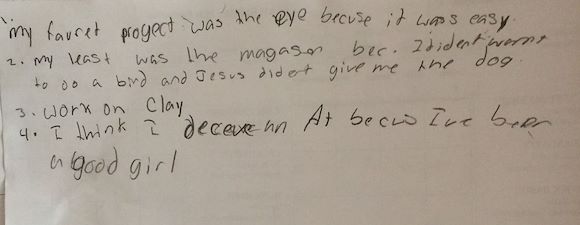 my favret progect was the eye becuse it was easy.
2. my least was the magasen bec. I dident wornt
to do a bird and Jesus didet give me the dog.
3. work on Clay
4. I think I deceve an At becus I've been
a good girl